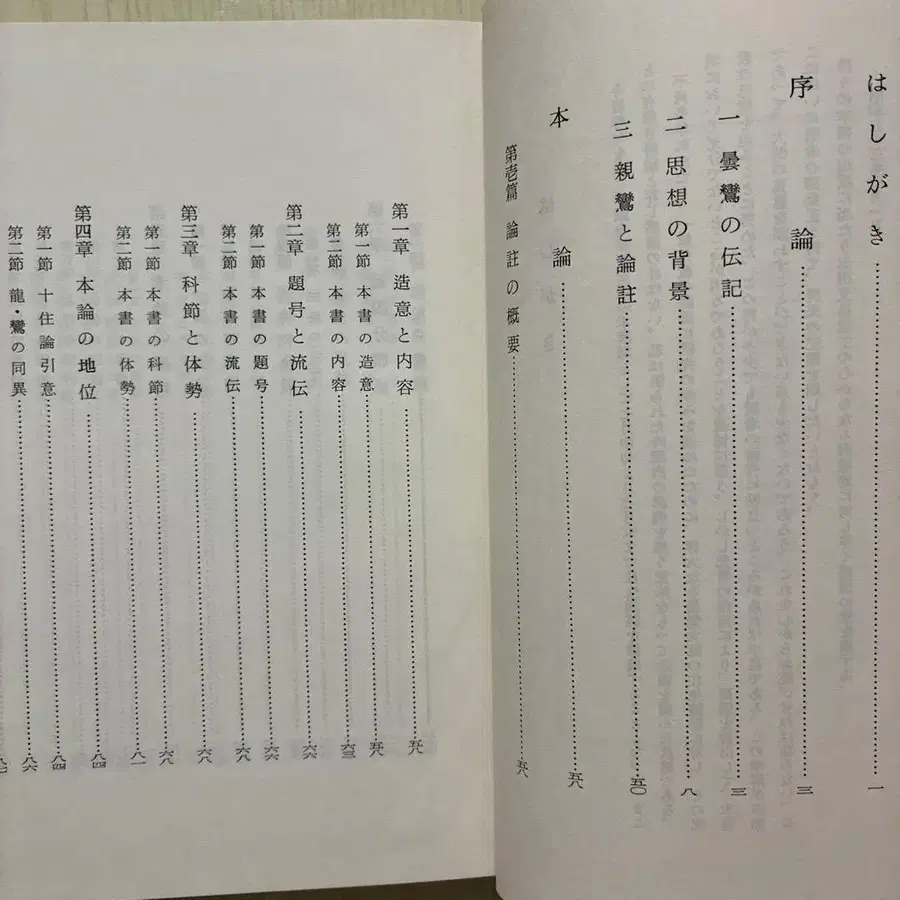 はしがき……一
序論……三
一 曇鸞の伝記……三
二 思想の背景……八
三 親鸞と論註……五〇
本論……五八
第壱篇 論註の概要……五八
第一章 造意と内容……五八
第一節 本書の造意……五八
第二節 本書の内容……六三
第二章 題号と流伝……六六
第一節 本書の題号……六六
第二節 本書の流伝……六八
第三章 科節と体勢……六八
第一節 本書の科節……六八
第二節 本書の体勢……八一
第四章 本論の地位……八四
第一節 十住論引意……八四
第二節 龍・鸞の同異……八六